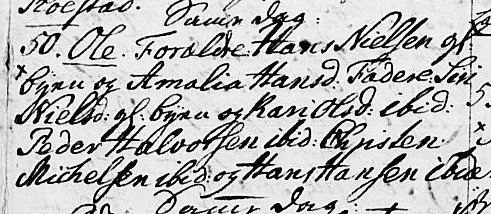 Roestad.
Samme Dag:
50. Ole. Forældre: Hans Nielsen gf
Byen og Amalia Hansd. Faddere: Siri
Nielsd: gf: Byen og Kari Olsd: ibid:
Peder Halvorsen ibid: Christen
Michelsen ibid: og Hans Hansen ibid
Samme Dag: